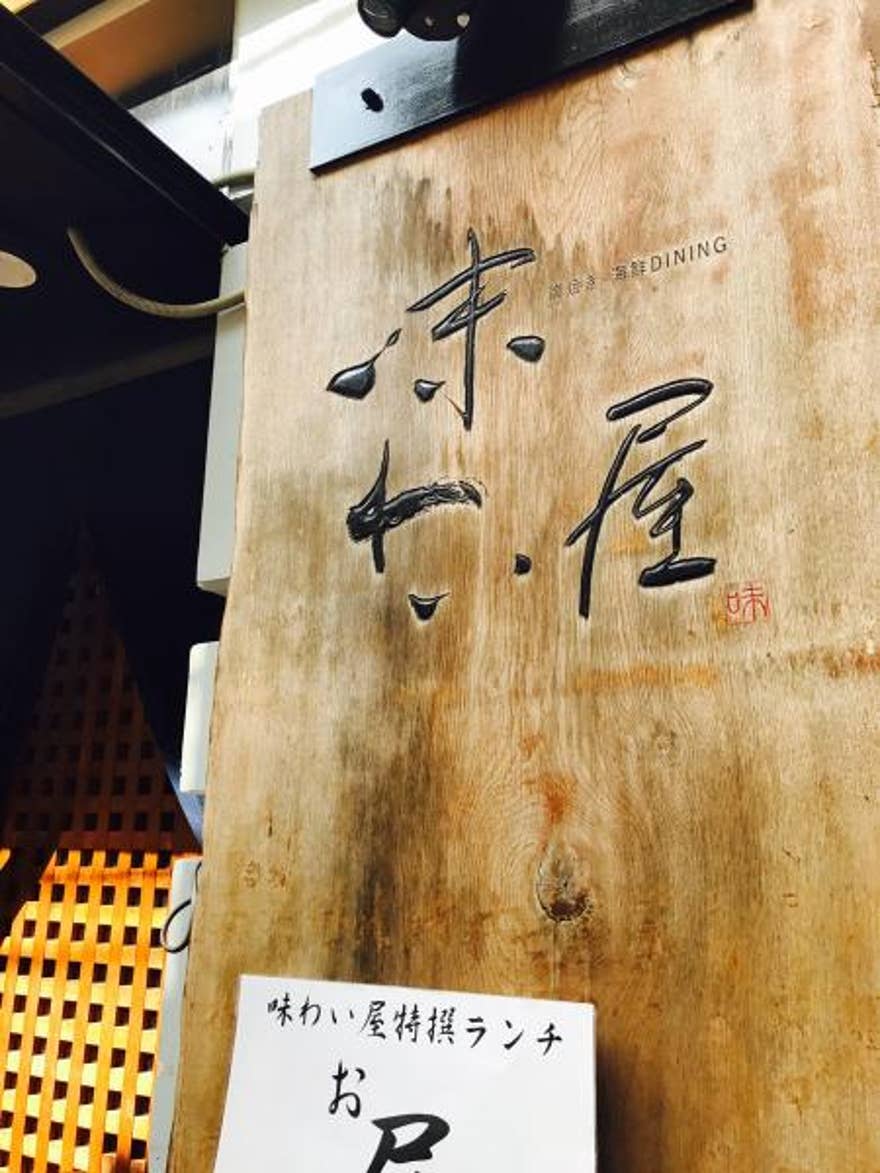 味わい屋
炭焼き 海鮮DINING
味
味わい屋特撰ランチ
お